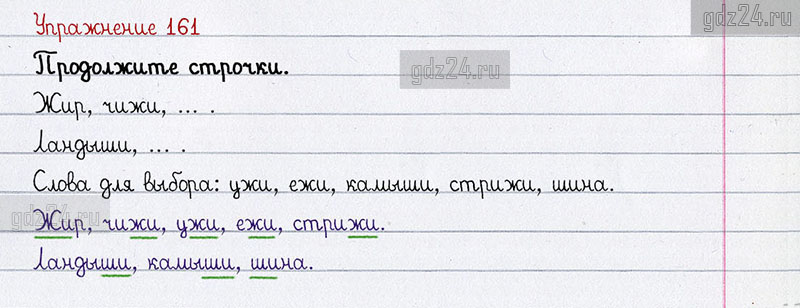 gdz24.ru
Упражнение 161
Продолжите строчки.
gdz24.ru
Жир, чижи, ... .
Ландыши, ... .
Слова для выбора: ужи, ежи, камыши, стрижи, шина.
gdz24.ru
Жир, чижи, ужи, ежи, стрижи.
Ландыши, камыши, шина.